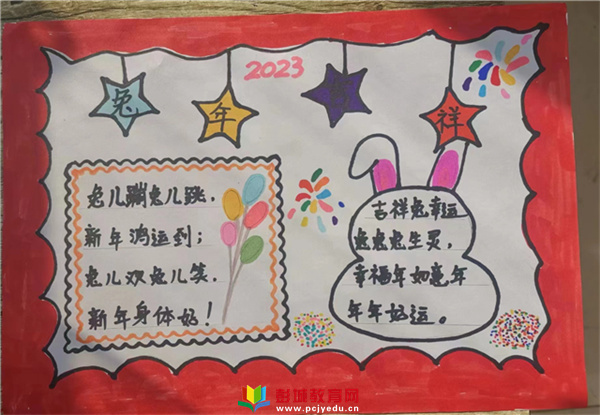 2023
兔 年 祥
兔儿蹦兔儿跳，
新年鸿运到；
兔儿欢兔儿笑，
新年身体好！
吉祥兔幸运
兔兔兔生灵，
幸福年如意年
年年好运。
彭城教育网
www.pcjyedu.cn